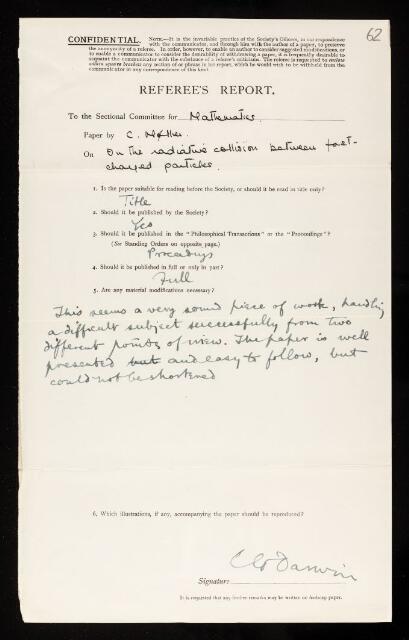 62
CONFIDENTIAL. NOTE.—It is the invariable practice of the Society's Officers, in correspondence
with the communicator, and through him with the author of a paper, to preserve
the anonymity of a referee. In order, however, to enable an author to consider suggested modifications, or
to enable a communicator to consider the desirability of withdrawing a paper, it is frequently desirable to
acquaint the communicator with the substance of a referee's criticisms. The referee is requested to
unless any section of or phrase in his report, which he would wish to be withheld from the
communicator in any correspondence of this kind.
REFEREE'S REPORT.
To the Sectional Committee for Mathematics
Paper by C. Møller.
On On the radiative collision between fast-
charged particles.
1. Is the paper suitable for reading before the Society, or should it be read in title only?
Title
2. Should it be published by the Society?
Yes
3. Should it be published in the "Philosophical Transactions" or the "Proceedings"?
(See Standing Orders on opposite page.)
Proceedings
4. Should it be published in full or only in part?
Full
5. Are any material modifications necessary?
This seems a very sound piece of work, handling
a difficult subject successfully from two
different points of view. The paper is well
presented but and easy to follow, but
could not be shortened
6. Which illustrations, if any, accompanying the paper should be reproduced?
C G Darwin
Signature:
It is requested that any further remarks may be written on foolscap paper.